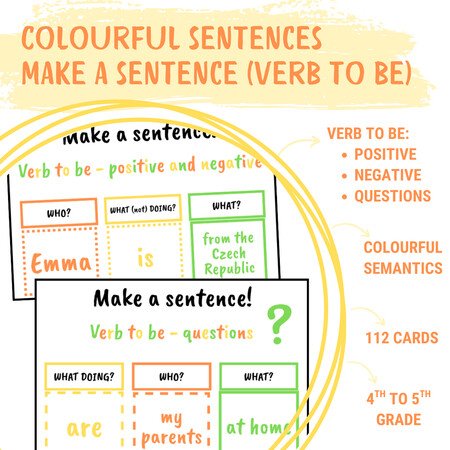 COLOURFUL SENTENCES
MAKE A SENTENCE (VERB TO BE)
Make a sentence!
Verb to be - positive and negative
WHO?
WHAT (not) DOING?
WHAT?
Emma
is
from the
Czech
Republic
Make a sentence!
Verb to be - questions
?
WHAT DOING?
WHO?
WHAT?
are
my
parents
at home
VERB TO BE:
• POSITIVE
• NEGATIVE
• QUESTIONS
COLOURFUL
SEMANTICS
112 CARDS
4TH TO 5TH
GRADE